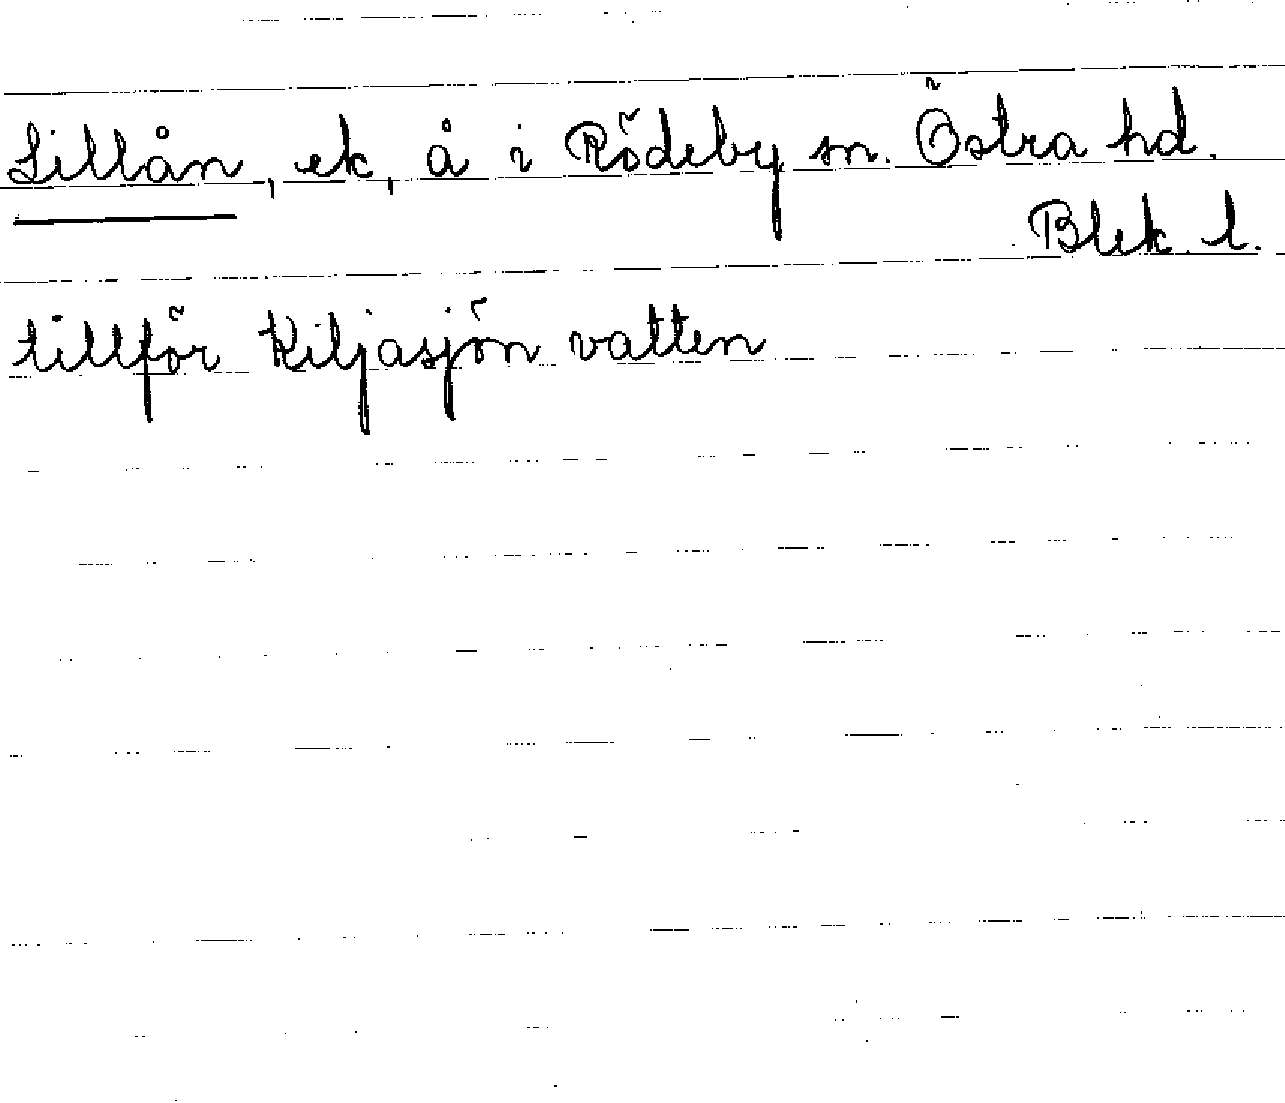 Lillån, ek, å i Rödeby sn. Östra hd.
Blek. l.
tillför Kiljasjön vatten